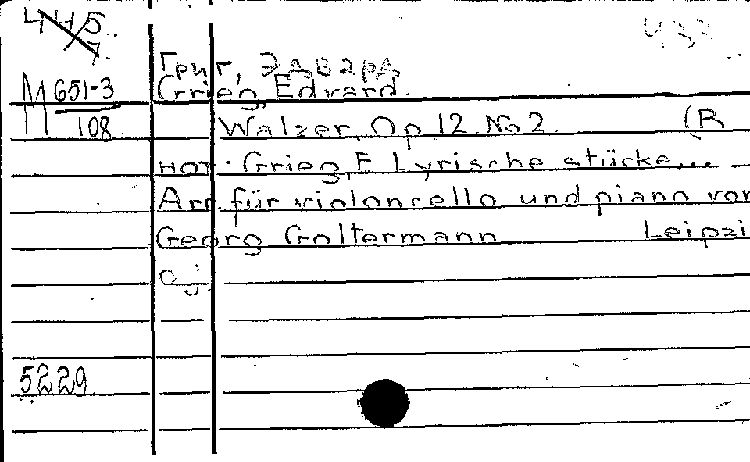 Григ, Эдвард
М 651-3 Grieg, Edvard.
108 Walzer, Op 12 No 2. (R
нот. Grieg, E Lyrische stücke...
Arr für violoncello und piano von
Georg Goltermann Leipzi
5229